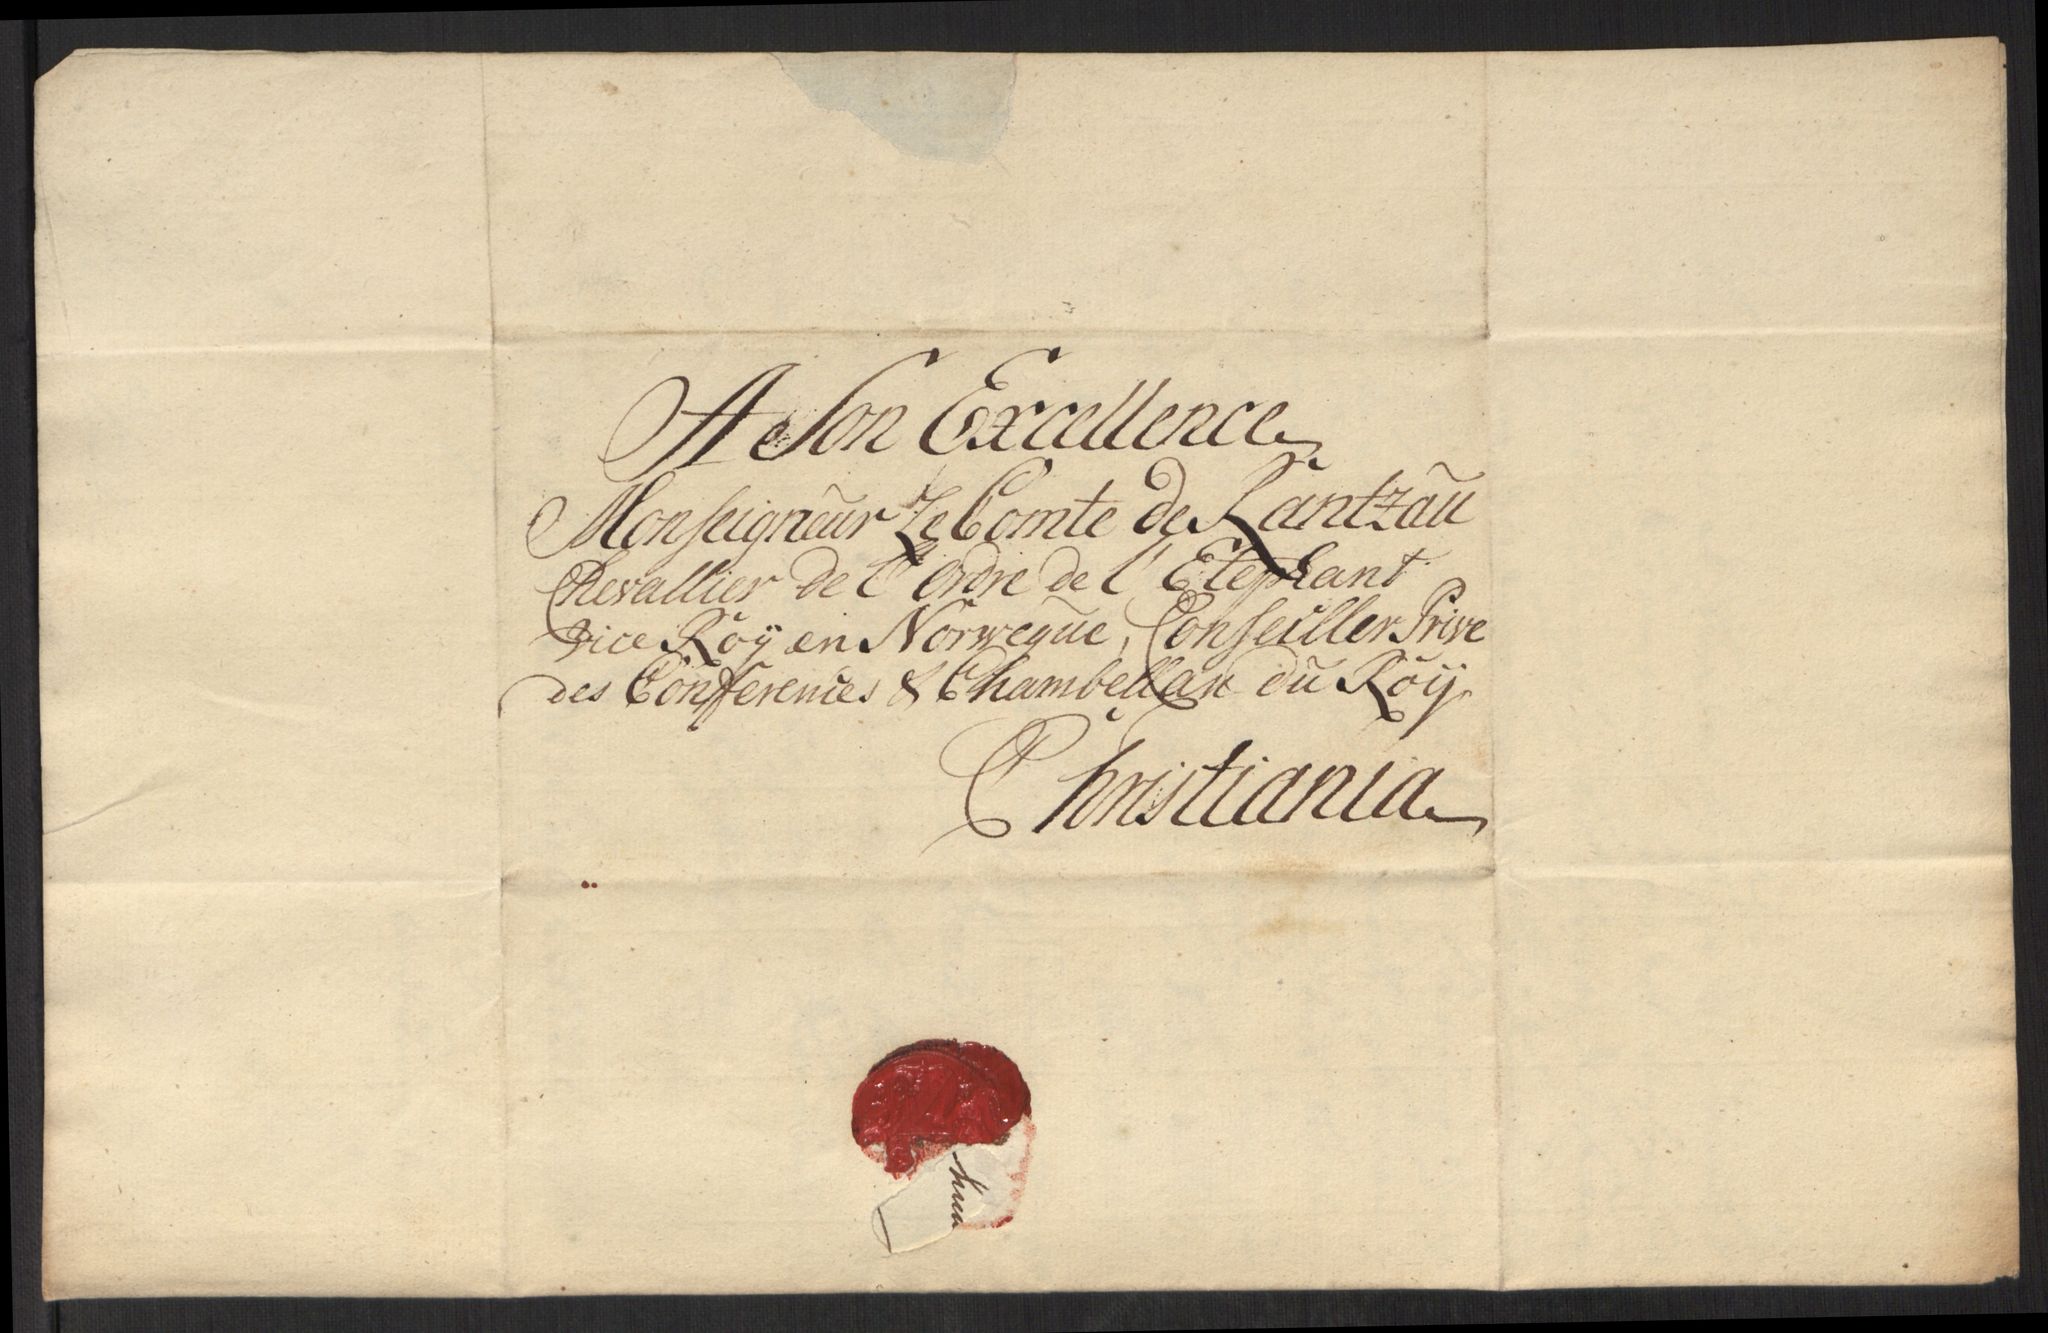 A Son Excellence
Monseigneur Le Comte de Rantzau
Chevallier de l'Ordre de l'Elephant
vice Roÿ en Norwegue, Conseiller Prive
des Conferences & Chambellan du Roÿ
Christiania